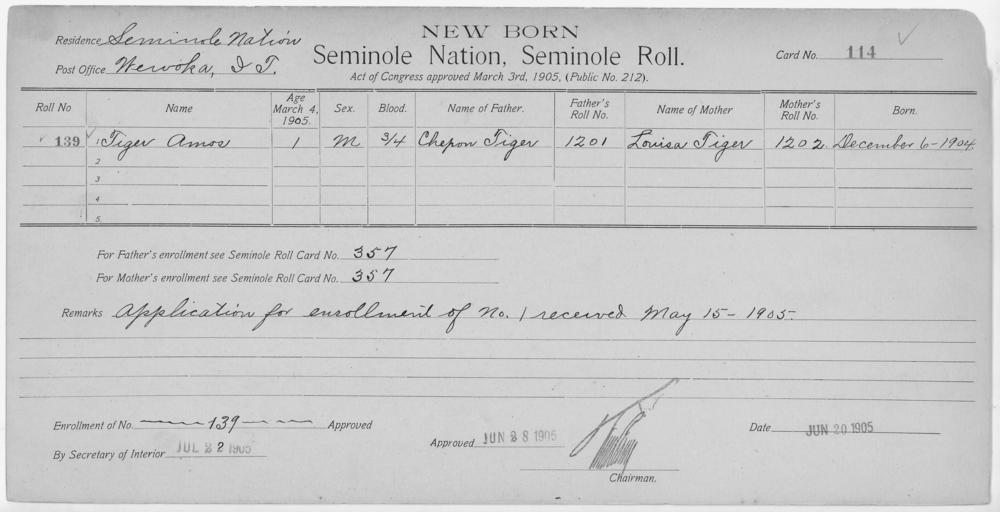 NEW BORN
Seminole Nation, Seminole Roll.
Act of Congress approved March 3rd, 1905, (Public No. 212).
Residence Seminole Nation
Post Office Wewoka, I T.
Card No. 114
Roll No Name Age March 4, 1905. Sex. Blood. Name of Father. Father's Roll No. Name of Mother Mother's Roll No. Born.
139 1 Tiger Amos 1 M 3/4 Chepon Tiger 1201 Louisa Tiger 1202 December 6-1904
2
3
4
5.
For Father's enrollment see Seminole Roll Card No. 357
For Mother's enrollment see Seminole Roll Card No. 357
Remarks Application for enrollment of No. 1 received May 15-1905.
Enrollment of No. 139 Approved
By Secretary of Interior JUL 22 1905
Approved JUN 28 1905
Chairman.
Date JUN 20 1905